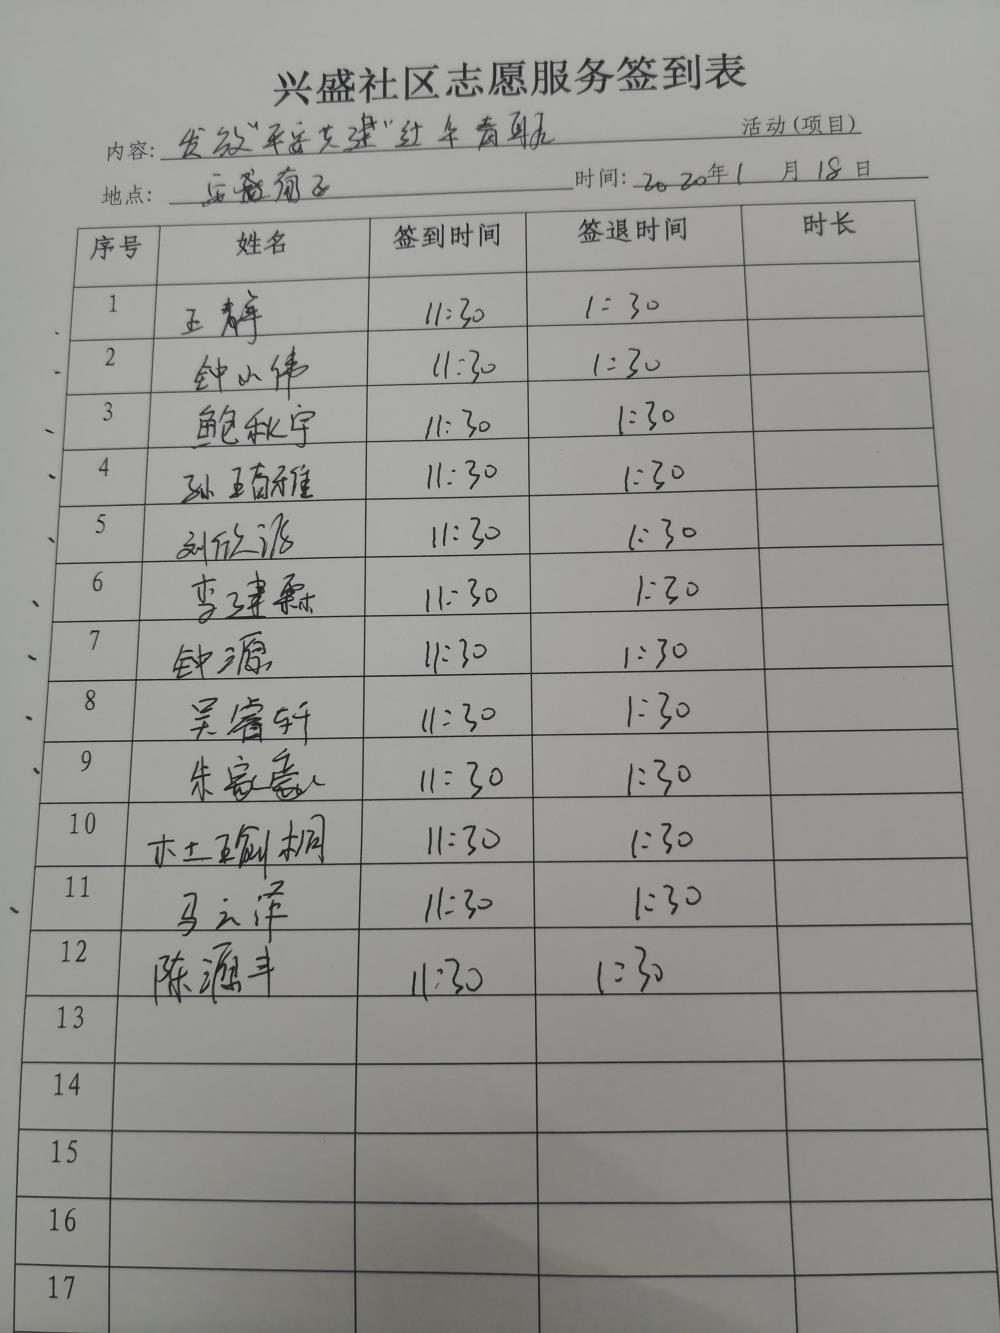 兴盛社区志愿服务签到表
内容: 发放"平安共建"红 活动(项目)
地点: 时间: 2020年1月18日
序号 姓名 签到时间 签退时间 时长
1 王静 11:30 1:30
2 钟小伟 11:30 1:30
3 鲍秋宇 11:30 1:30
4 孙 11:30 1:30
5 刘欣 11:30 1:30
6 李建霖 11:30 1:30
7 钟源 11:30 1:30
8 吴睿轩 11:30 1:30
9 朱家豪 11:30 1:30
10 11:30 1:30
11 马云泽 11:30 1:30
12 陈源丰 11:30 1:30
13
14
15
16
17